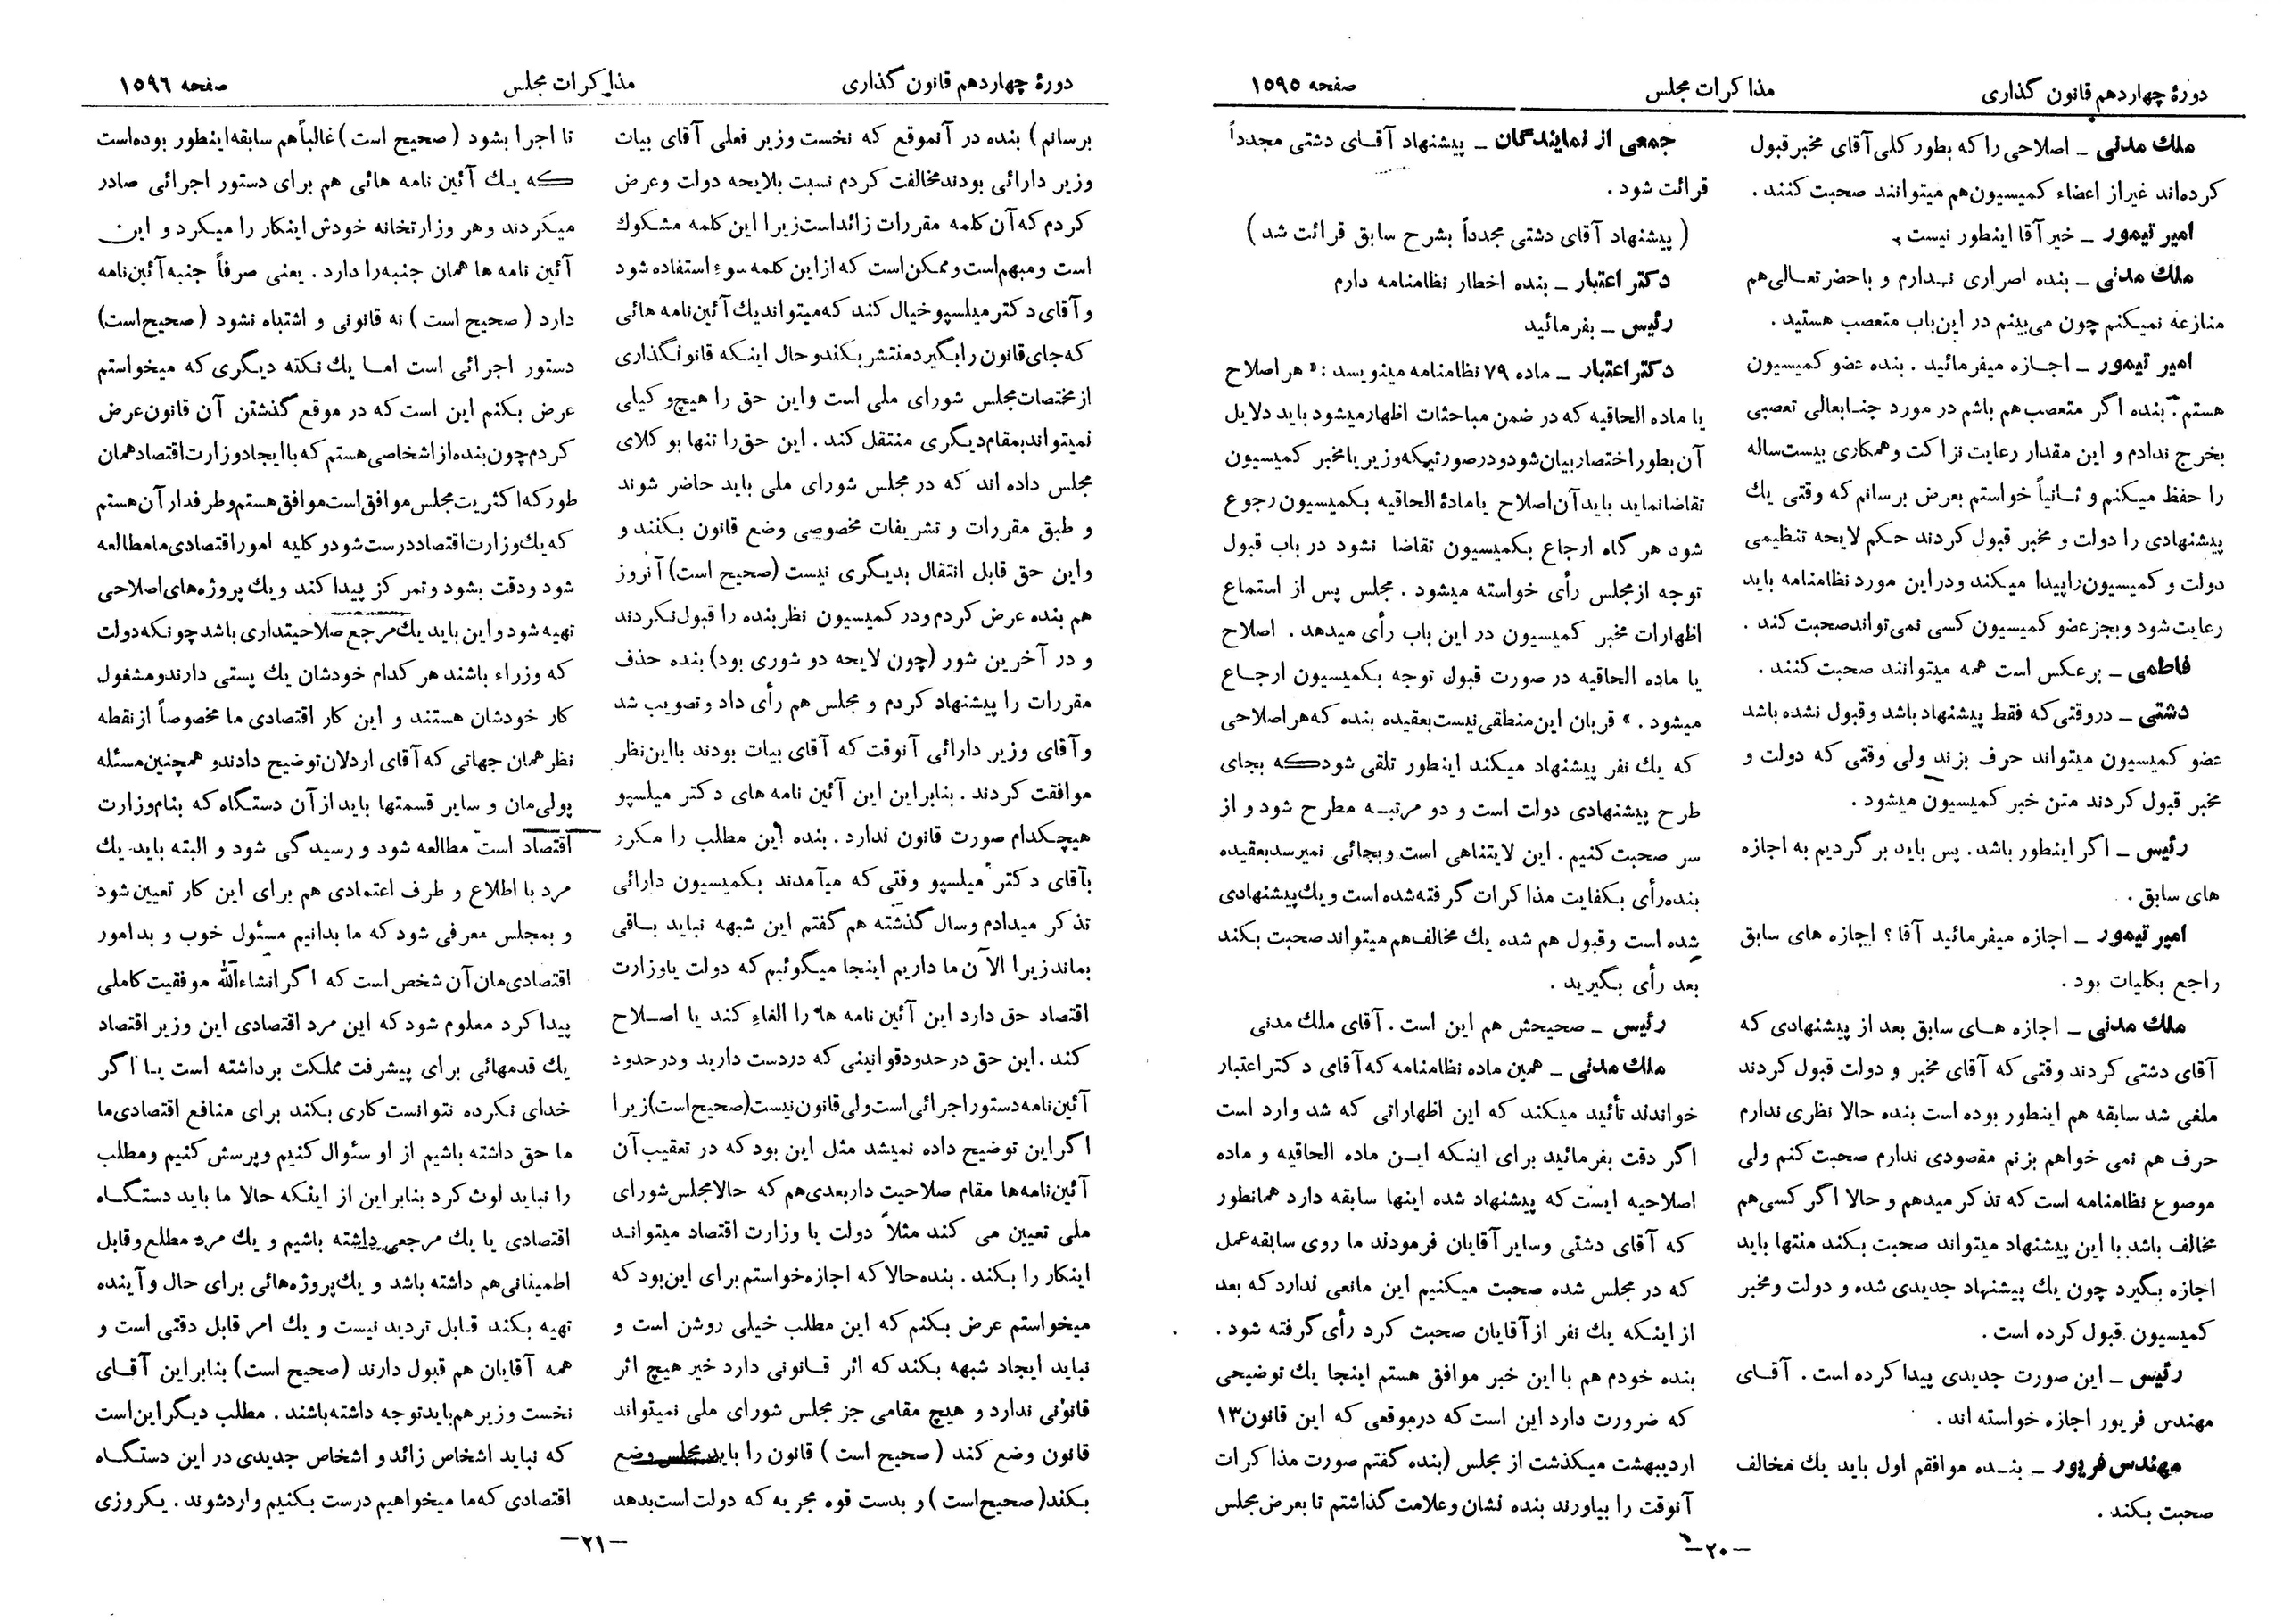 دورهٔ چهاردهم قانون گذاری
مذاکرات مجلس
صفحه ۱۵۹۵
ملك مدنی ـ اصلاحی را که بطور کلی آقای مخبر قبول
کرده‌اند غیر از اعضاء کمیسیون هم میتوانند صحبت کنند .
امیر تیمور ـ خیر آقا اینطور نیست .
ملك مدنی ـ بنده اصراری ندارم و با حضر تعالی هم
منازعه نمیکنم چون می‌بینم در این باب متعصب هستید .
امیر تیمور ـ اجازه میفرمائید . بنده عضو کمیسیون
هستم . بنده اگر متعصب هم باشم در مورد جنابعالی تعصبی
بخرج ندادم و این مقدار رعایت نزاکت و همکاری بیست ساله
را حفظ میکنم و ثانیاً خواستم بعرض برسانم که وقتی یك
پیشنهادی را دولت و مخبر قبول کردند حکم لایحه تنظیمی
دولت و کمیسیون را پیدا میکند و در این مورد نظامنامه باید
رعایت شود و بجز عضو کمیسیون کسی نمی‌تواند صحبت کند .
فاطمی ـ برعکس است همه میتوانند صحبت کنند .
دشتی ـ در وقتی که فقط پیشنهاد باشد و قبول نشده باشد
عضو کمیسیون میتواند حرف بزند ولی وقتی که دولت و
مخبر قبول کردند متن خبر کمیسیون میشود .
رئیس ـ اگر اینطور باشد. پس باید بر گردیم به اجازه
های سابق .
امیر تیمور ـ اجازه میفرمائید آقا ؟ اجازه های سابق
راجع بکلیات بود .
ملك مدنی ـ اجازه های سابق بعد از پیشنهادی که
آقای دشتی کردند وقتی که آقای مخبر و دولت قبول کردند
ملغی شد سابقه هم اینطور بوده است بنده حالا نظری ندارم
حرف هم نمی خواهم بزنم مقصودی ندارم صحبت کنم ولی
موضوع نظامنامه است که تذکر میدهم و حالا اگر کسی هم
مخالف باشد با این پیشنهاد میتواند صحبت بکند منتها باید
اجازه بگیرد چون یك پیشنهاد جدیدی شده و دولت و مخبر
کمیسیون قبول کرده است .
رئیس ـ این صورت جدیدی پیدا کرده است . آقای
مهندس فریور اجازه خواسته اند .
مهندس فریور ـ بنده موافقم اول باید یك مخالف
صحبت بکند .
جمعی از نمایندگان ـ پیشنهاد آقای دشتی مجدداً
قرائت شود .
( پیشنهاد آقای دشتی مجدداً بشرح سابق قرائت شد )
دکتر اعتبار ـ بنده اخطار نظامنامه دارم
رئیس ـ بفرمائید
دکتر اعتبار ـ ماده ۷۹ نظامنامه مینویسد : « هر اصلاح
یا ماده الحاقیه که در ضمن مباحثات اظهار میشود باید دلایل
آن بطور اختصار بیان شود و در صورتیکه وزیر یا مخبر کمیسیون
تقاضا نماید باید آن اصلاح یا مادهٔ الحاقیه بکمیسیون رجوع
شود هر گاه ارجاع بکمیسیون تقاضا نشود در باب قبول
توجه از مجلس رأی خواسته میشود . مجلس پس از استماع
اظهارات مخبر کمیسیون در این باب رأی میدهد . اصلاح
یا ماده الحاقیه در صورت قبول توجه بکمیسیون ارجاع
میشود . » قربان این منطقی نیست بعقیده بنده که هر اصلاحی
که یك نفر پیشنهاد میکند اینطور تلقی شود که بجای
طرح پیشنهادی دولت است و دو مرتبه مطرح شود و از
سر صحبت کنیم . این لایتناهی است و بجائی نمیرسد بعقیده
بنده رأی بکفایت مذاکرات گرفته شده است و یك پیشنهادی
شده است و قبول هم شده یك مخالف هم میتواند صحبت بکند
بعد رأی بگیرید .
رئیس ـ صحیحش هم این است . آقای ملك مدنی
ملك مدنی ـ همین ماده نظامنامه که آقای دکتر اعتبار
خواندند تأئید میکند که این اظهاراتی که شد وارد است
اگر دقت بفرمائید برای اینکه این ماده الحاقیه و ماده
اصلاحیه ایست که پیشنهاد شده اینها سابقه دارد همانطور
که آقای دشتی و سایر آقایان فرمودند ما روی سابقه عمل
که در مجلس شده صحبت میکنیم این مانعی ندارد که بعد
از اینکه یك نفر از آقایان صحبت کرد رأی گرفته شود .
بنده خودم هم با این خبر موافق هستم اینجا یك توضیحی
که ضرورت دارد این است که در موقعی که این قانون ۱۳
اردیبهشت میگذشت از مجلس (بنده گفتم صورت مذاکرات
آنوقت را بیاورند بنده نشان و علامت گذاشتم تا بعرض مجلس
-۲۰-
دورهٔ چهاردهم قانون گذاری
مذاکرات مجلس
صفحه ۱۵۹٦
برسانم ) بنده در آنموقع که نخست وزیر فعلی آقای بیات
وزیر دارائی بودند مخالفت کردم نسبت بلایحه دولت و عرض
کردم که آن کلمه مقررات زائد است زیرا این کلمه مشکوك
است و مبهم است و ممکن است که از این کلمه سوء استفاده شود
و آقای دکتر میلسپو خیال کند که میتواند یك آئین نامه هائی
که جای قانون را بگیرد منتشر بکند و حال اینکه قانونگذاری
از مختصات مجلس شورای ملی است و این حق را هیچ وکیلی
نمیتواند بمقام دیگری منتقل کند . این حق را تنها بوکلای
مجلس داده اند که در مجلس شورای ملی باید حاضر شوند
و طبق مقررات و تشریفات مخصوصی وضع قانون بکنند و
و این حق قابل انتقال بدیگری نیست (صحیح است) آنروز
هم بنده عرض کردم و در کمیسیون نظر بنده را قبول نکردند
و در آخرین شور (چون لایحه دو شوری بود) بنده حذف
مقررات را پیشنهاد کردم و مجلس هم رأی داد و تصویب شد
و آقای وزیر دارائی آنوقت که آقای بیات بودند با این نظر
موافقت کردند . بنابراین این آئین نامه های دکتر میلسپو
هیچکدام صورت قانون ندارد . بنده این مطلب را مکرر
بآقای دکتر میلسپو وقتی که میآمدند بکمیسیون دارائی
تذکر میدادم و سال گذشته هم گفتم این شبهه نباید باقی
بماند زیرا الآن ما داریم اینجا میگوئیم که دولت یا وزارت
اقتصاد حق دارد این آئین نامه ها را الغاء کند یا اصلاح
کند . این حق در حدود قوانینی که در دست دارید و در حدود
آئین نامه دستور اجرائی است ولی قانون نیست (صحیح است) زیرا
اگر این توضیح داده نمیشد مثل این بود که در تعقیب آن
آئین نامه‌ها مقام صلاحیت دار بعدی هم که حالا مجلس شورای
ملی تعیین می کند مثلاً دولت یا وزارت اقتصاد میتواند
اینکار را بکند . بنده حالا که اجازه خواستم برای این بود که
میخواستم عرض بکنم که این مطلب خیلی روشن است و
نباید ایجاد شبهه بکند که اثر قانونی دارد خیر هیچ اثر
قانونی ندارد و هیچ مقامی جز مجلس شورای ملی نمیتواند
قانون وضع کند ( صحیح است ) قانون را باید مجلس وضع
بکند ( صحیح است ) و بدست قوه مجریه که دولت است بدهد
تا اجرا بشود ( صحیح است ) غالباً هم سابقه اینطور بوده است
که یك آئین نامه هائی هم برای دستور اجرائی صادر
میکردند و هر وزارتخانه خودش اینکار را میکرد و این
آئین نامه ها همان جنبه را دارد . یعنی صرفاً جنبه آئین نامه
دارد ( صحیح است ) نه قانونی و اشتباه نشود ( صحیح است)
دستور اجرائی است اما یك نکته دیگری که میخواستم
عرض بکنم این است که در موقع گذشتن آن قانون عرض
کردم چون بنده از اشخاصی هستم که با ایجاد وزارت اقتصاد همان
طور که اکثریت مجلس موافق است موافق هستم و طرفدار آن هستم
که یك وزارت اقتصاد درست شود و کلیه امور اقتصادی ما مطالعه
شود و دقت بشود و تمرکز پیدا کند و یك پروژه های اصلاحی
تهیه شود و این باید یك مرجع صلاحیتداری باشد چونکه دولت
که وزراء باشند هر کدام خودشان یك پستی دارند و مشغول
کار خودشان هستند و این کار اقتصادی ما مخصوصاً از نقطه
نظر همان جهاتی که آقای اردلان توضیح دادند و همچنین مسئله
پولی مان و سایر قسمتها باید از آن دستگاه که بنام وزارت
اقتصاد است مطالعه شود و رسیدگی شود و البته باید یك
مرد با اطلاع و طرف اعتمادی هم برای این کار تعیین شود
و بمجلس معرفی شود که ما بدانیم مسئول خوب و بد امور
اقتصادی مان آن شخص است که اگر انشاءالله موفقیت کاملی
پیدا کرد معلوم شود که این مرد اقتصادی این وزیر اقتصاد
یك قدمهائی برای پیشرفت مملکت برداشته است یا اگر
خدای نکرده نتوانست کاری بکند برای منافع اقتصادی ما
ما حق داشته باشیم از او سئوال کنیم و پرسش کنیم و مطلب
را نباید لوث کرد بنابراین از اینکه حالا ما باید دستگاه
اقتصادی یا یك مرجعی داشته باشیم و یك مرد مطلع و قابل
اطمینانی هم داشته باشد و یك پروژه هائی برای حال و آینده
تهیه بکند قابل تردید نیست و یك امر قابل دقتی است و
همه آقایان هم قبول دارند (صحیح است) بنابراین آقای
نخست وزیر هم باید توجه داشته باشند . مطلب دیگر این است
که نباید اشخاص زائد و اشخاص جدیدی در این دستگاه
اقتصادی که ما میخواهیم درست بکنیم وارد شوند . یکروزی
-۲۱-